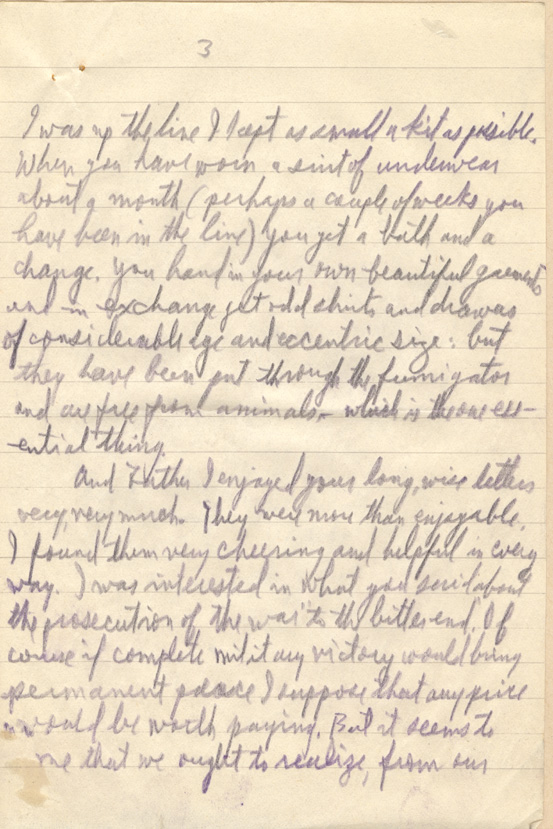 3
I was up the line I kept as small a kit as possible.
When you have worn a suit of underwear
about a month (perhaps a couple of weeks you
have been in the line) you get a bath and a
change. You hand in your own beautiful garments
and in exchange get odd shirts and drawas
of considerable age and eccentric size: but
they have been put through the fumigator
and are free from animals – which is the one ess-
ential thing.
And Father I enjoyed your long, wise letters
very, very much. They were more than enjoyable,
I found them very cheering and helpful in every
way. I was interested in what you said about
the prosecution of the war "to the bitter end". Of
course if complete military victory would bring
permanent peace I suppose that any price
would be worth paying. But it seems to
me that we ought to realize, from our